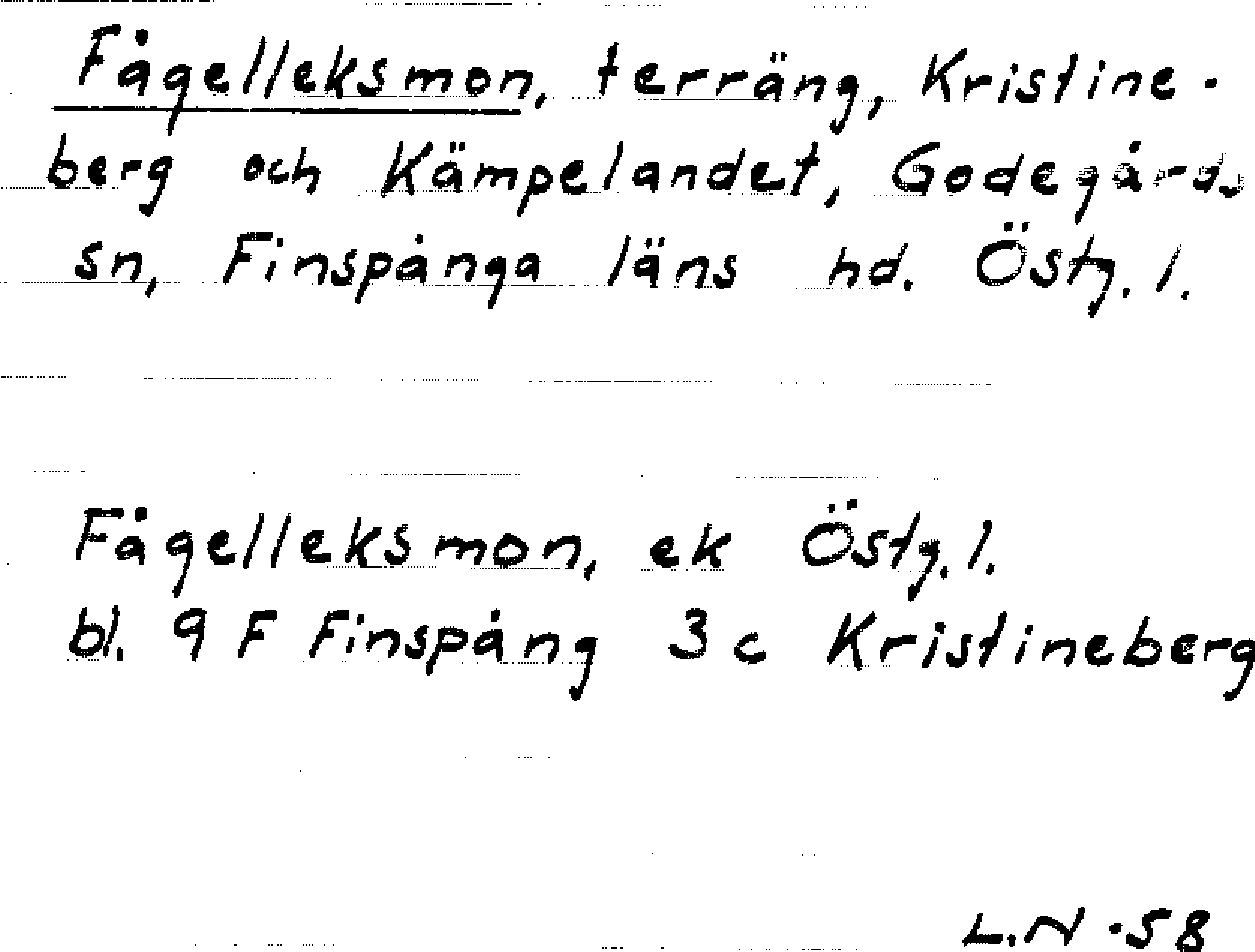 Fågelleksmon, terräng, Kristine-
berg och Kämpelandet, Godegårds
sn, Finspånga läns hd. Östg. l.
Fågelleksmon, ek Östg. l.
bl. 9 F Finspång 3 c Kristineberg
L.N -58